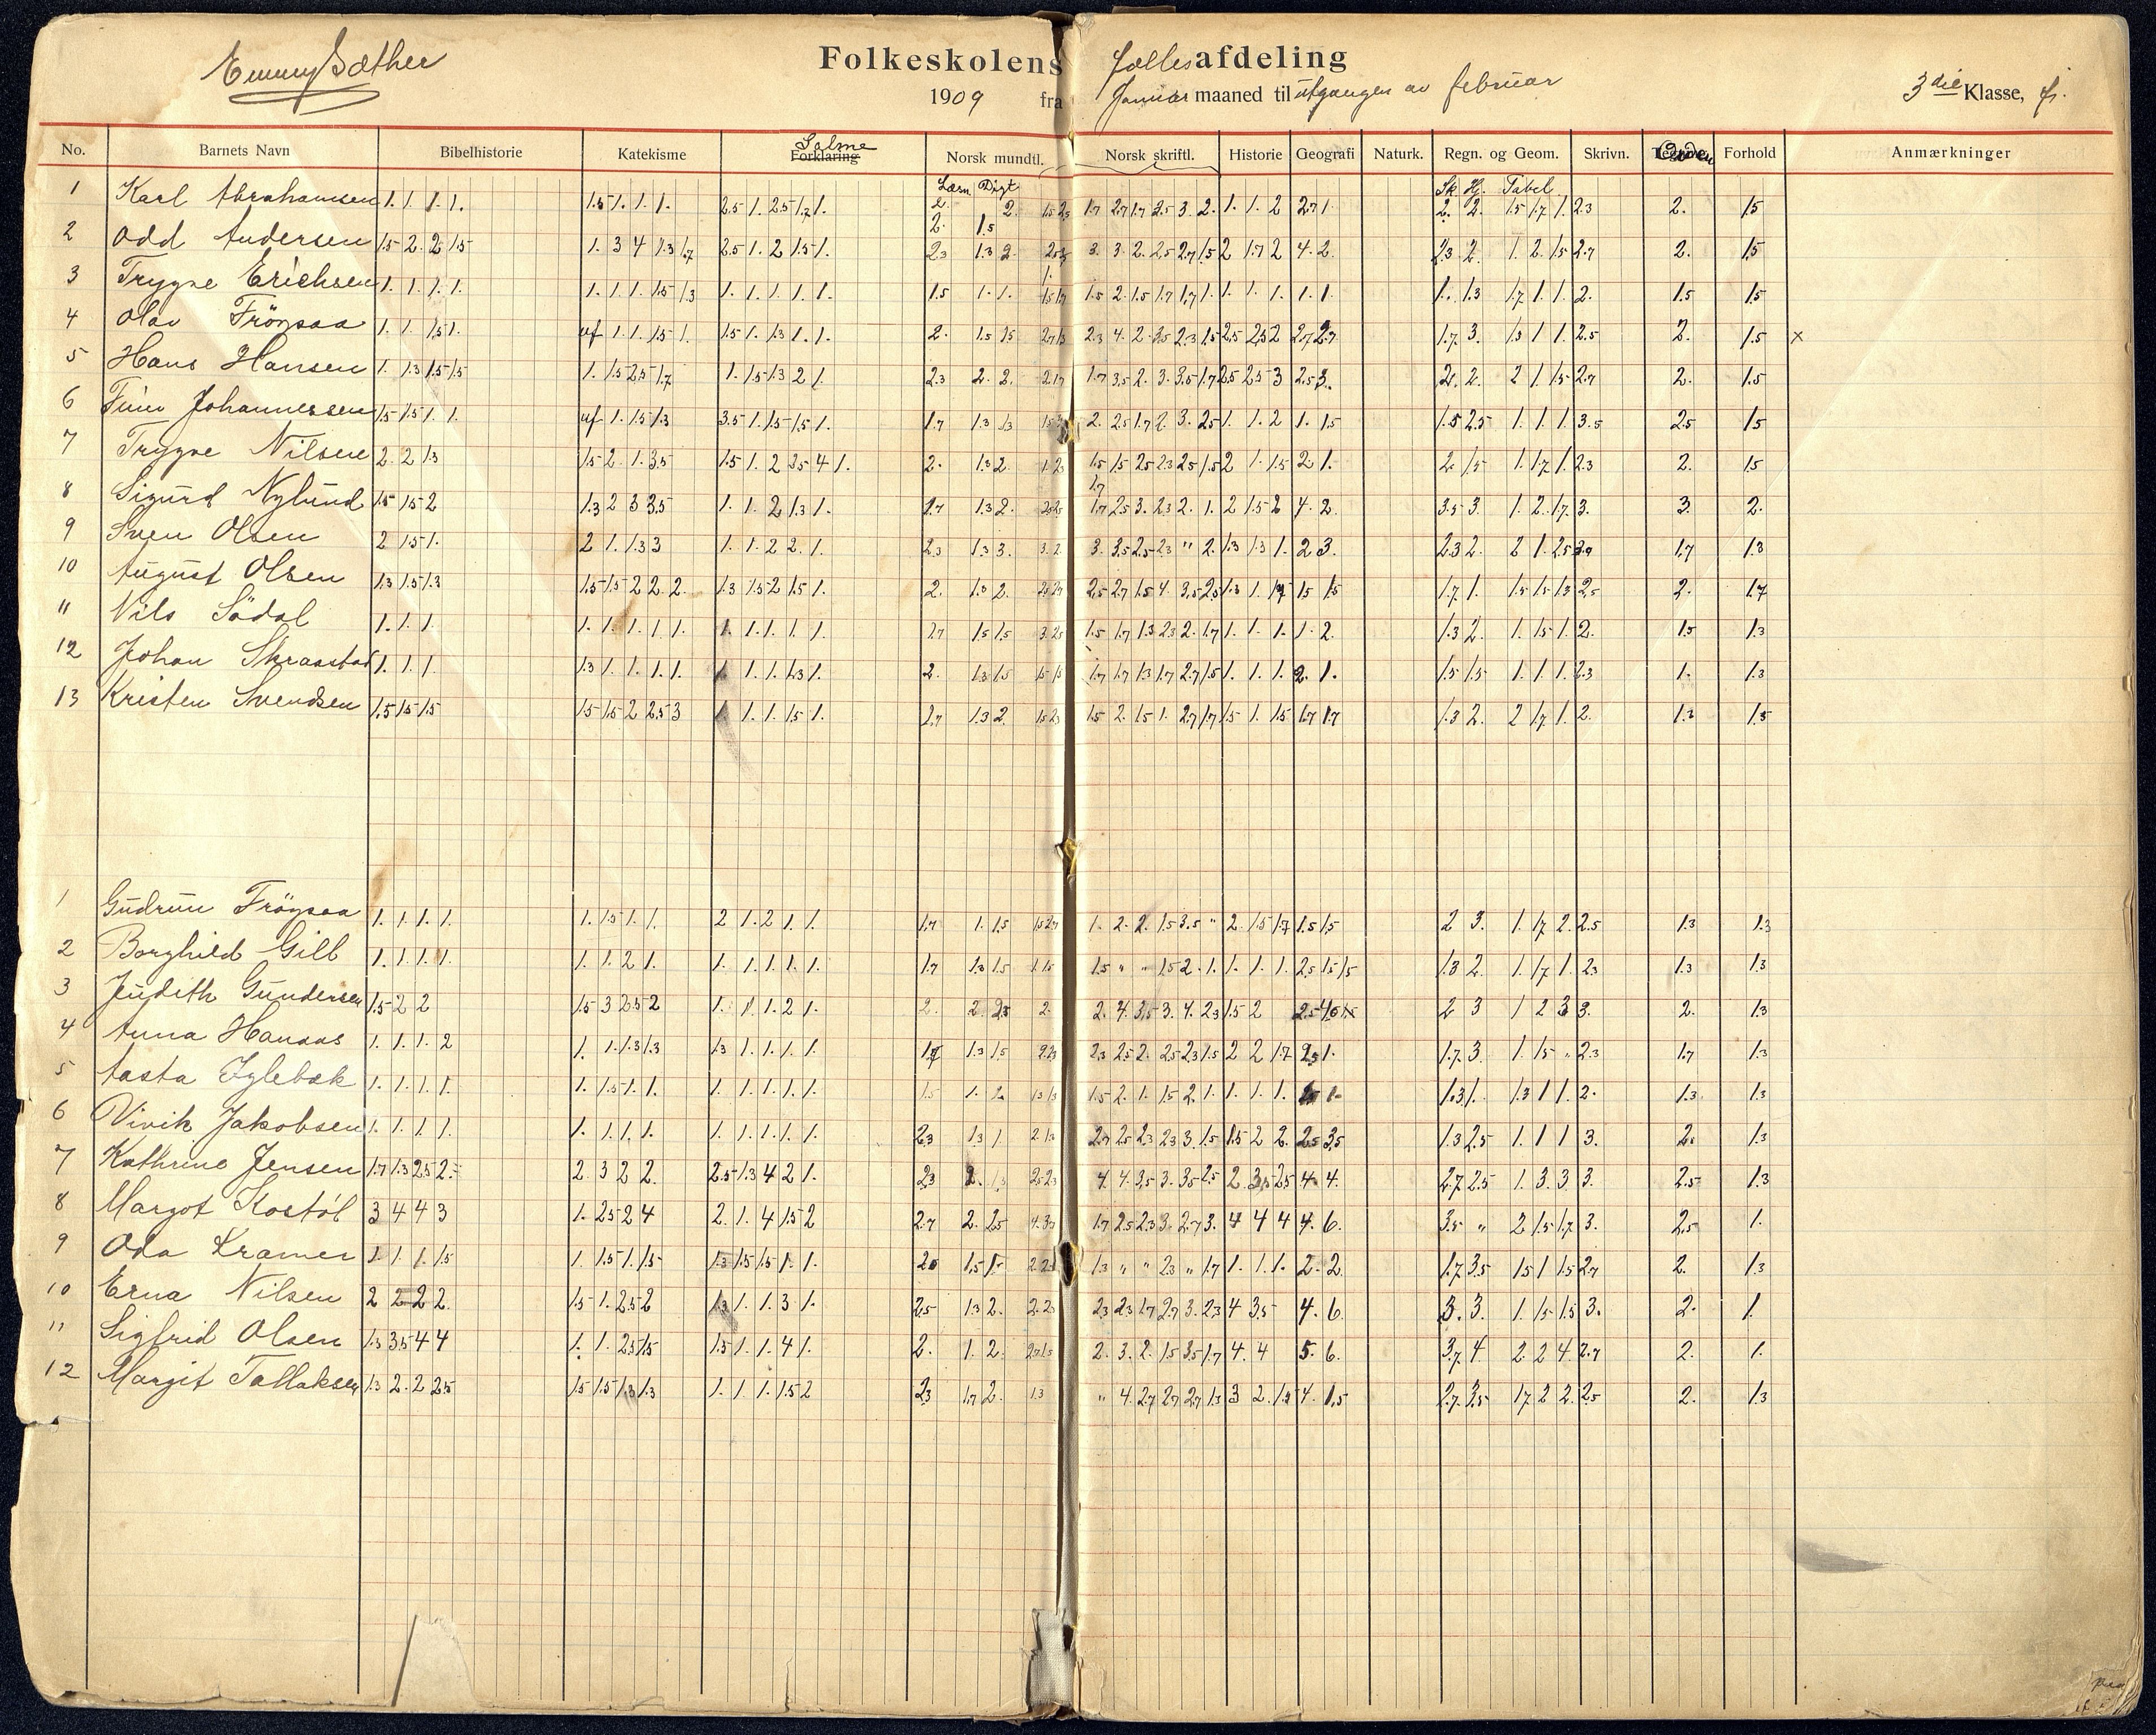 Emmy Sæther
Folkeskolens fællesafdeling
1909 fra Januar maaned til utgangen av februar
3die Klasse, fj.
No. Barnets Navn Bibelhistorie Katekisme Salme Forklaring Norsk mundtl. Norsk skriftl. Historie Geografi Naturk. Regn. og Geom. Skrivn. Orden Forhold Anmærkninger
Læsn. Digt Sk. Hj. Tabel
1 Karl Abrahamsen 1. 1. 1. 1. 1.5 1. 1. 1. 2.5 1. 2.5 1.7 1. 1. 1. 2 2. 2. 1.5 1.7 1. 2.3 2. 1.5
2 Odd Andersen 1.5 2. 2 1.5 1. 3 4 1.3 1.7 2.5 1. 2 1.5 1. 2.3 1.3 2. 3. 3. 2. 2.5 2.7 1.5 2 1.7 2 4. 2. 2.3 2. 1. 2. 1.5 2.7 2. 1.5
3 Trygve Erichsen 1. 1. 1. 1. 1. 1. 1. 1.5 1.3 1. 1. 1. 1. 1. 1.5 1. 1. 1.5 2. 1.5 1.7 1.7 1. 1. 1. 1. 1. 1. 1. 1.3 1.7 1. 1. 2. 1.5 1.5
4 Olav Frøysaa 1. 1. 1.5 1. uf 1. 1. 1.5 1. 1.5 1. 1.3 1. 1. 2. 1.5 1.5 2.3 4. 2. 3.5 2.3 1.5 2.5 2.5 2 1.7 3. 1.3 1 1. 2.5 2. 1.5 x
5 Hans Hansen 1. 1.3 1.5 1.5 1. 1.5 2.5 1.7 1. 1.5 1.3 2 1. 2.3 2. 2. 1.7 3.5 2. 3. 3.5 1.7 2.5 2.5 3 2.5 3. 2. 2. 2 1. 1.5 2.7 2. 1.5
6 Finn Johannessen 1.5 1.5 1. 1. uf 1. 1.5 1.3 3.5 1. 1.5 1.5 1. 1.7 1.3 1.3 2. 2.5 1.7 2. 3. 2.5 1. 1. 2 1. 1.5 1.5 2.5 1. 1. 1. 3.5 2.5 1.5
7 Trygve Nilsen 2. 2 1.3 1.5 2. 1. 3.5 1.5 1. 2 2.5 4 1. 2. 1.3 2. 1.5 1.5 2.5 2.3 2.5 1.5 2 1. 1.5 2 1. 2. 1.5 1. 1.7 1. 2.3 2. 1.5
8 Sigurd Nylund 1.5 1.5 2 1.3 2 3 3.5 1. 1. 2 1.3 1. 1.7 1.3 2. 1.7 2.5 3. 2.3 2. 1. 2 1.5 2 4. 2. 3.5 3. 1. 2. 1.7 3. 3. 2.
9 Sven Olsen 2 1.5 1. 2 1. 1.3 3 1. 1. 2 2. 1. 2.3 1.3 3. 3. 2. 3. 3.5 2.5 2.3 " 2. 1.3 1.3 1. 2 3. 2.3 2. 2 1. 2.5 1.7 1.3
10 August Olsen 1.3 1.5 1.3 1.5 1.5 2 2. 2. 1.3 1.5 2 1.5 1. 2. 1.3 2. 2.5 2.7 1.5 4. 3.5 2.5 1.3 1. 1.7 1.5 1.5 1.7 1. 1.5 1.5 1.3 2.5 2. 1.7
11 Nils Sødal 1. 1. 1. 1. 1. 1. 1. 1. 1. 1. 1. 1. 1. 2.7 1.5 1.5 1.5 1.7 1.3 2.3 2. 1.7 1. 1. 1. 1. 2. 1.3 2. 1. 1.5 1. 2. 1.5 1.3
12 Johan Skraastad 1. 1. 1. 1.3 1. 1. 1. 1. 1. 1. 1. 1.3 1. 2. 1.3 1.5 1.7 1.7 1.3 1.7 2.7 1.5 1. 1. 1. 2. 1. 1.5 1.5 1. 1. 1. 2.3 1. 1.3
13 Kristen Svendsen 1.5 1.5 1.5 1.5 1.5 2 2.5 3 1. 1. 1. 1.5 1. 2.7 1.3 2. 1.5 2. 1.5 1. 2.7 1.7 1.5 1. 1.5 1.7 1.7 1.3 2. 2 1.7 1. 2. 1.3 1.5
1 Gudrun Frøysaa 1. 1. 1. 1. 1. 1.5 1. 1. 2 1. 2 1. 1. 1.7 1. 1.5 1. 2. 2. 1.5 3.5 " 2. 1.5 1.7 1.5 1.5 2 3. 1. 1.7 2. 2.5 1.3 1.3
2 Borghild Gill 1. 1. 1. 1. 1. 1. 2 1. 1. 1. 1. 1. 1. 1.7 1.3 1.5 1.5 " " 1.5 2. 1. 1. 1. 1. 2.5 1.5 1.5 1.3 2. 1. 1.7 1. 2.3 1.3 1.3
3 Judith Gundersen 1.5 2 2 1.5 3 2.5 2 1. 1. 1. 2 1. 2. 2. 2.3 2. 4. 3.5 3. 4. 2.3 1.5 2 2 3 1 2 3 3. 2. 1.3
4 Anna Hanaas 1. 1. 1. 2 1. 1. 1.3 1.3 1.3 1. 1. 1. 1. 1.3 1.5 2.3 2.5 2. 2.5 2.3 1.5 2 2 1.7 1.7 3. 1. 1.5 " 2.3 1.7 1.3
5 Aasta Iglebæk 1. 1. 1. 1. 1. 1.5 1. 1. 1. 1. 1. 1. 1. 1.5 1. 2. 1.5 2. 1. 1.5 2. 1. 1. 1. 1. 1.3 1. 1.3 1 1. 2. 1.3 1.3
6 Vivik Jakobsen 1. 1. 1. 1. 1. 1. 1. 1. 1. 1. 1. 1. 1. 2.3 1.3 1. 2.7 2.5 2.3 2.3 3. 1.5 1.5 2 2. 2.5 3.5 1.3 2.5 1. 1 1 3. 2. 1.3
7 Kathrine Jensen 1.7 1.3 2.5 2. 2. 3 2 2. 2.5 1.3 4 2 1. 2.3 4. 4. 3.5 3. 3.5 2.5 2. 3.5 2.5 4. 4. 2.7 2.5 1. 3. 3 3. 2.5 1.3
8 Margot Kostøl 3 4 4 3 1. 2.5 2 4 2. 1. 4 1.5 2 2.7 2. 2.5 1.7 2.5 2.3 3. 2.7 3. 4 4 4 4. 6. 3.5 " 2 1.5 1.7 3. 2.5 1.
9 Oda Kramer 1. 1. 1. 1.5 1. 1.5 1. 1.5 1.3 1.5 1.5 1. 1. 1.3 " " 2.3 " 1.7 1. 1. 1. 2. 2. 1.7 3.5 1.5 1 1.5 2.7 2. 1.3
10 Erna Nilsen 2 2 2 2. 1.5 1. 2.5 2 1.3 1. 1. 3 1. 2.5 1.3 2. 2.3 2.3 1.7 2.7 3. 2.3 4 3.5 4. 6. 3. 3. 1. 1.5 1.5 3. 2. 1.
11 Sigfrid Olsen 1.3 3.5 4 4 1. 1. 2.5 1.5 1.5 1. 1. 4 1. 2. 1. 2. 2. 3. 2. 1.5 3.5 1.7 4. 4 5. 6. 3.7 4 2 2 4. 2.7 2. 1.
12 Margit Tallaksen 1.3 2. 2 2.5 1.5 1.5 1.3 1.3 1. 1. 1. 1.5 2 2.3 1.7 2. 1.3 " 4. 2.7 2.7 2.7 1.3 3 2. 1.5 4. 1.5 2.7 3.5 1.7 2 2. 2.5 2. 1.3